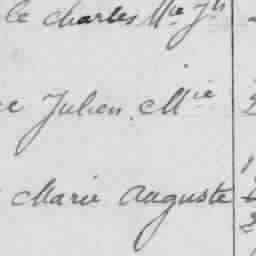 le Charles Mie Jh
Julien Mie
Marie Auguste